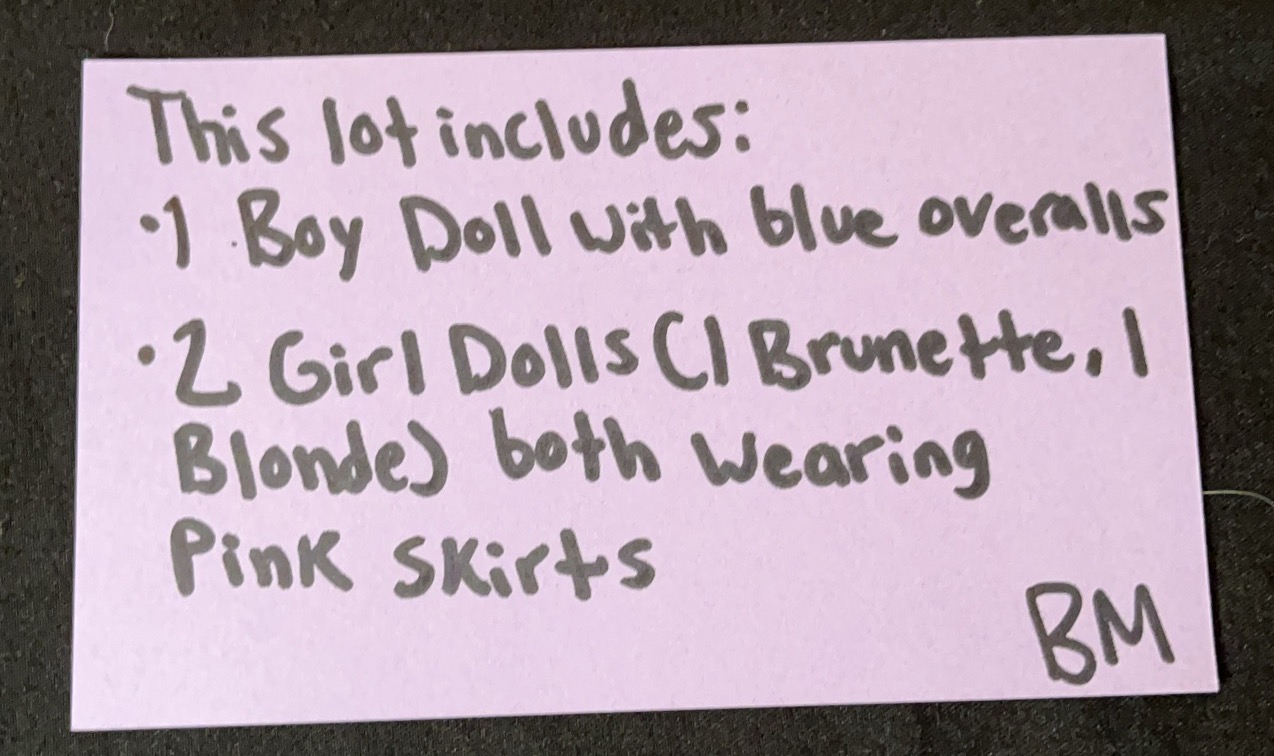 This lot includes:
•1 Boy Doll with blue overalls
•2 Girl Dolls (1 Brunette, 1
Blonde) both wearing
Pink skirts
BM